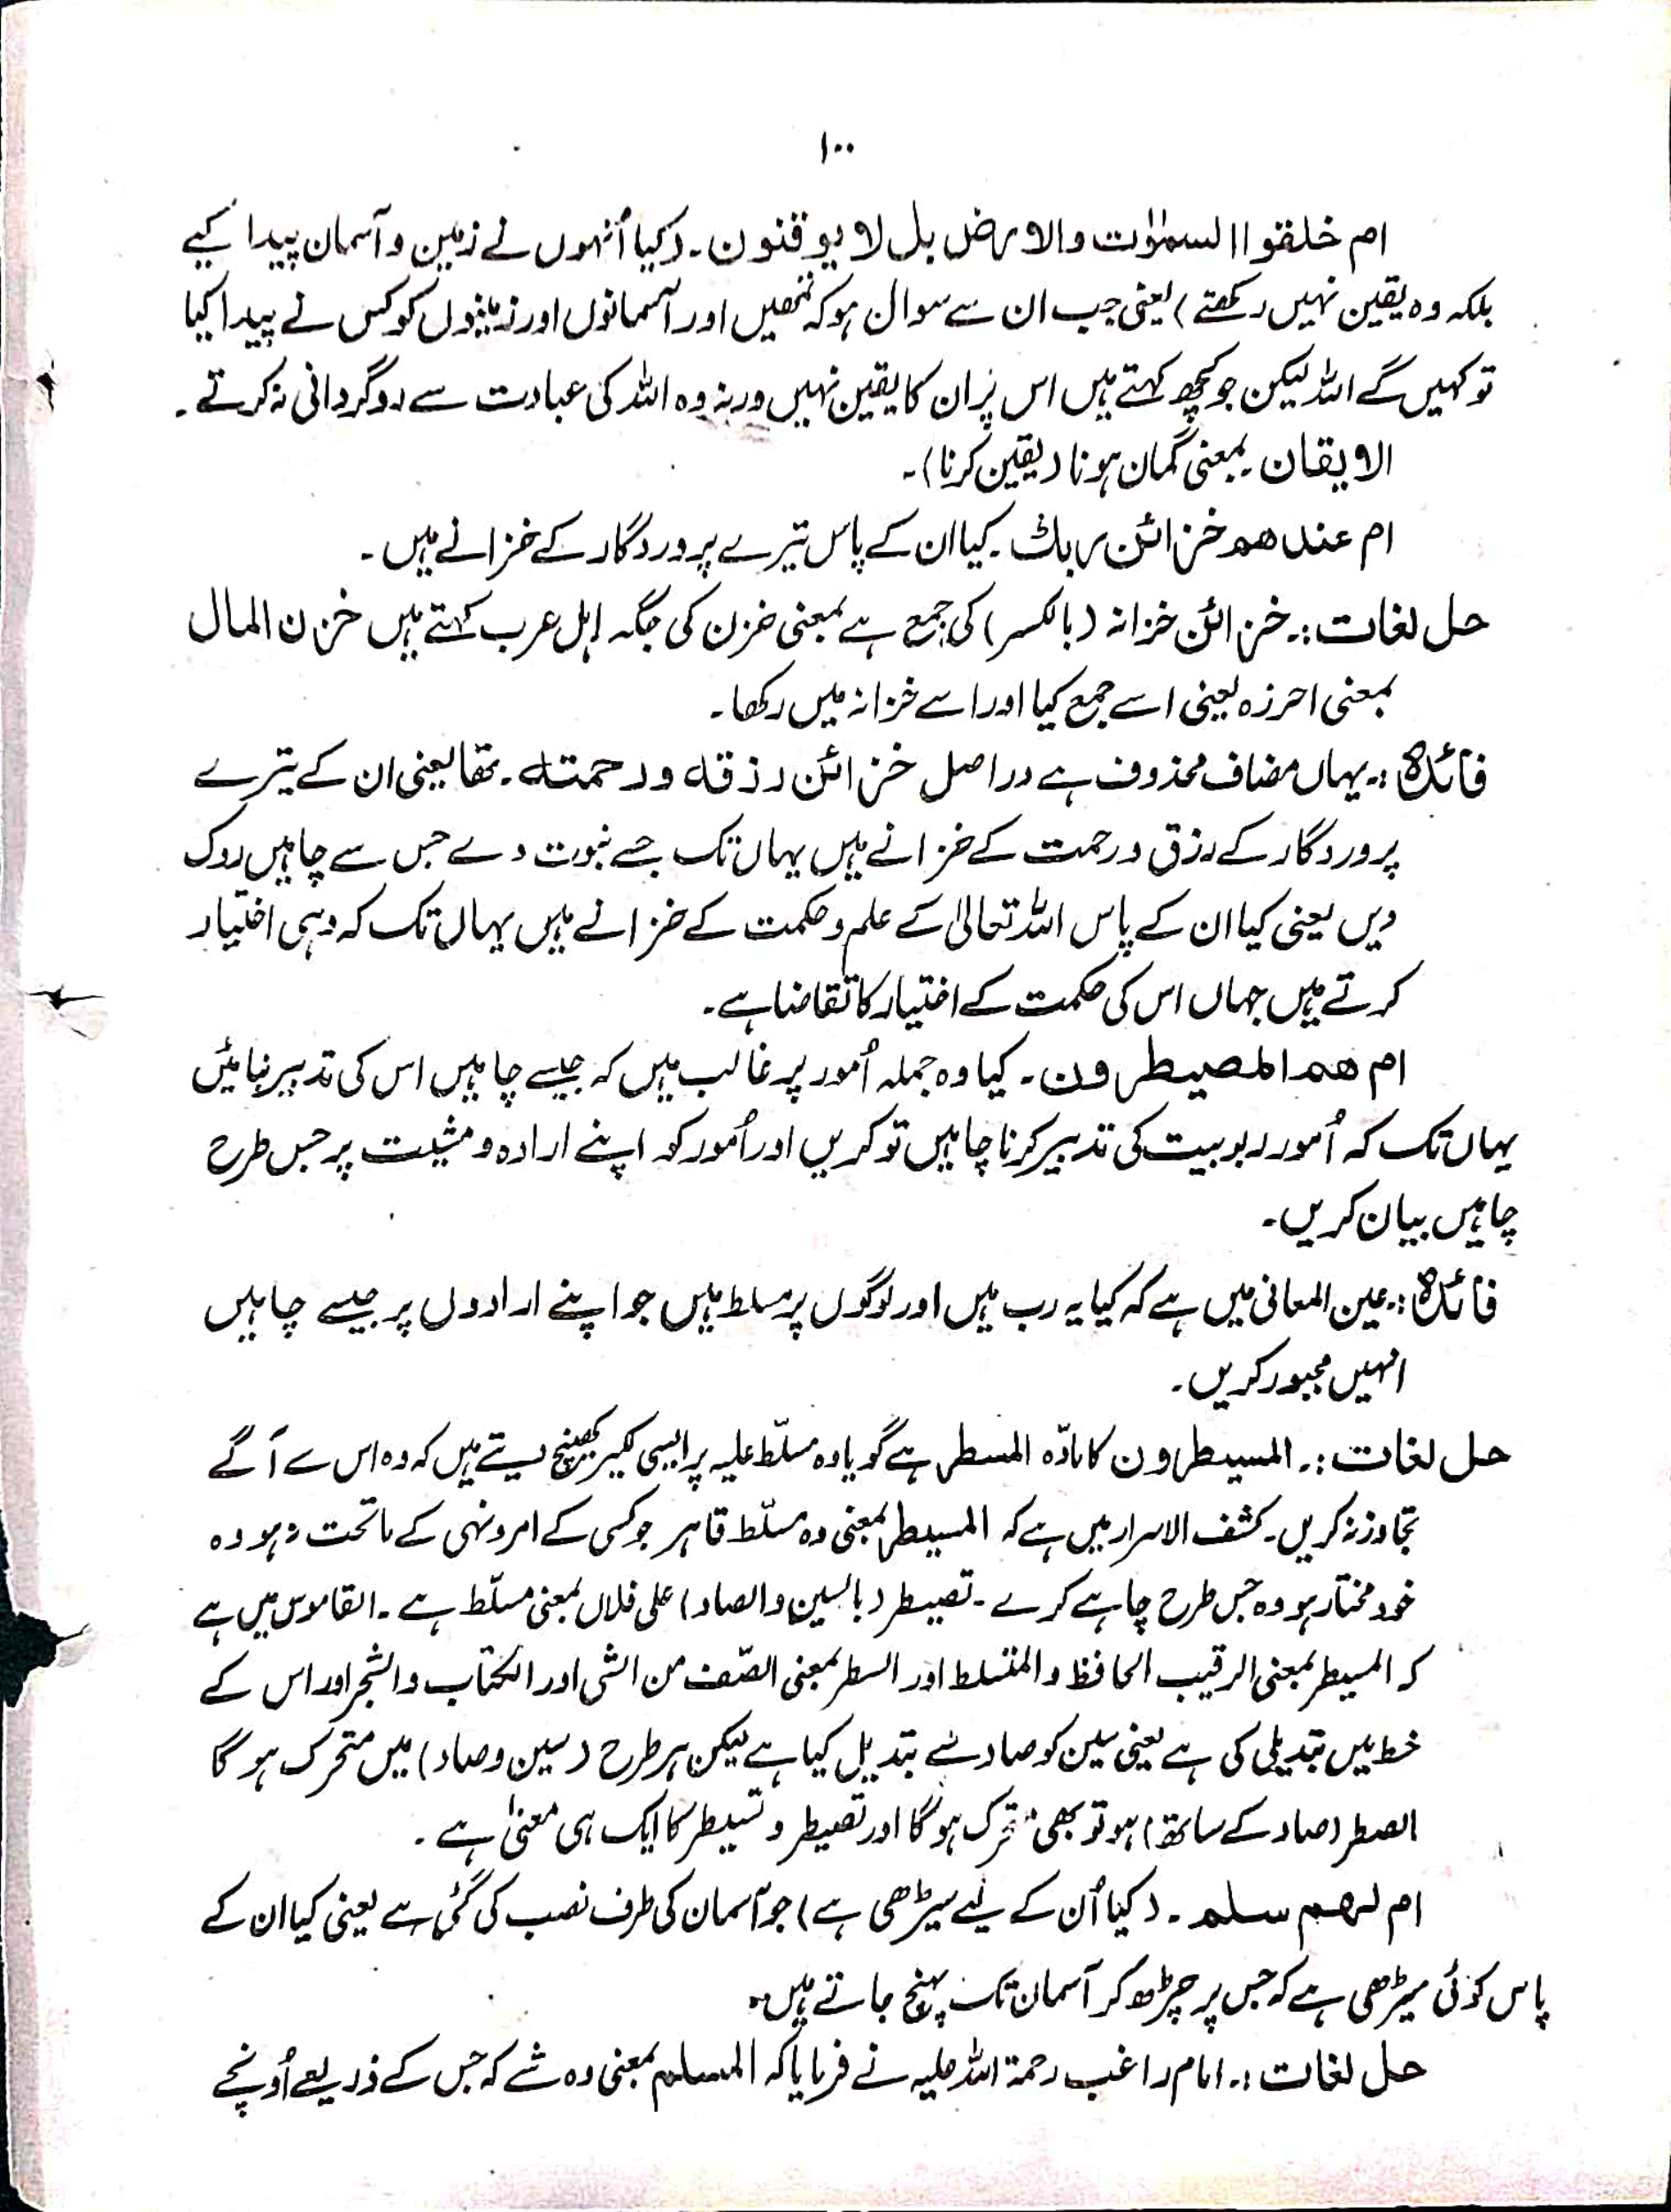 ۱۰۰
ام خلقوا السمٰوٰت والارض بل لا یوقنون۔ (کیا اُنہوں نے زمین و آسمان پیدا کیے
بلکہ وہ یقین نہیں رکھتے) یعنی جب ان سے سوال ہو کہ تمھیں اور آسمانوں اور زمینوں کو کس نے پیدا کیا
تو کہیں گے اللہ لیکن جو کچھ کہتے ہیں اس پر ان کا یقین نہیں ورنہ وہ اللہ کی عبادت سے روگردانی نہ کرتے۔
الایقان۔ بمعنی گمان ہونا (یقین کرنا)۔
ام عندھم خزائن ربک۔ کیا ان کے پاس تیرے پروردگار کے خزانے ہیں۔
حل لغات:۔ خزائن خزانہ (بالکسر) کی جمع ہے بمعنی خزن کی جگہ اہل عرب کہتے ہیں خزن المال
بمعنی احرزہ یعنی اسے جمع کیا اور اسے خزانہ میں رکھا۔
فائدہ:۔ یہاں مضاف محذوف ہے دراصل خزائن رزقہ ورحمتہ۔ تھا یعنی ان کے تیرے
پروردگار کے رزق و رحمت کے خزانے ہیں یہاں تک جسے نبوت دے جس سے چاہیں روک
دیں یعنی کیا ان کے پاس اللہ تعالیٰ کے علم و حکمت کے خزانے ہیں یہاں تک کہ وہی اختیار
کرتے ہیں جہاں اس کی حکمت کے اختیار کا تقاضا ہے۔
ام ھم المصیطرون۔ کیا وہ جملہ اُمور پر غالب ہیں کہ جیسے چاہیں اس کی تدبیر بنائیں
یہاں تک کہ اُمور ربوبیت کی تدبیر کرنا چاہیں تو کریں اور اُمور کو اپنے ارادہ و مشیت پر جس طرح
چاہیں بیان کریں۔
فائدہ:۔ عین المعانی میں ہے کہ کیا یہ رب ہیں اور لوگوں پر مسلط ہیں جو اپنے ارادوں پر جیسے چاہیں
انہیں مجبور کریں۔
حل لغات:۔ المسیطرون کا مادّہ المسطر ہے گویا وہ مسلّط علیہ پر ایسی لکیر کھینچ دیتے ہیں کہ وہ اس سے آگے
تجاوز نہ کریں۔ کشف الاسرار میں ہے کہ المسیطر بمعنی وہ مسلّط قاہر جو کسی کے امر و نہی کے ماتحت نہ ہو وہ
خود مختار ہو وہ جس طرح چاہے کرے۔ تصیطر (بالسین والصاد) علی فلاں بمعنی مسلّط ہے۔ القاموس میں ہے
کہ المسیطر بمعنی الرقیب الحافظ والمتسلط اور السطر بمعنی الصّف من الشی اور الکتاب والشجر اور اس کے
خط میں تبدیلی کی ہے یعنی سین کو صاد سے تبدیل کیا ہے لیکن ہر طرح (سین و صاد) میں متحرک ہو گا
الصطر (صاد کے ساتھ) ہو تو بھی متحرک ہو گا اور تصیطر و تسیطر کا ایک ہی معنیٰ ہے۔
ام لہم سلم۔ (کیا اُن کے لیے سیڑھی ہے) جو آسمان کی طرف نصب کی گئی ہے یعنی کیا ان کے
پاس کوئی سیڑھی ہے کہ جس پر چڑھ کر آسمان تک پہنچ جاتے ہیں۔
حل لغات:۔ امام راغب رحمۃ اللہ علیہ نے فرمایا کہ المسلم بمعنی وہ شے کہ جس کے ذریعے اُونچے